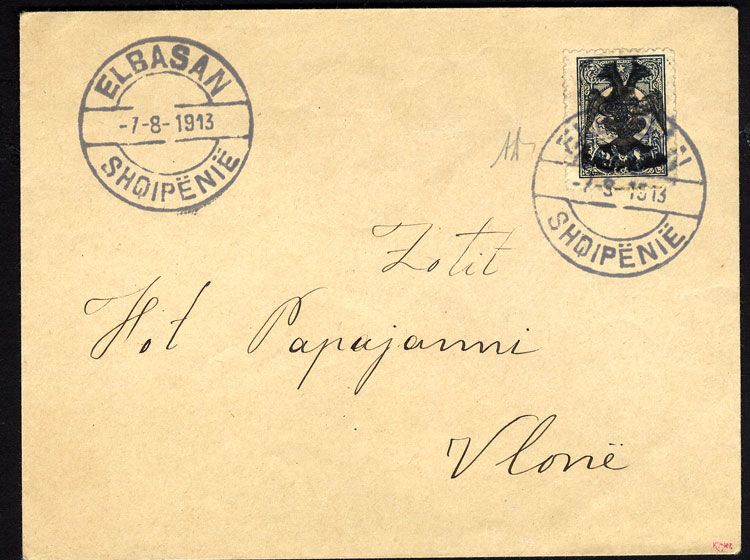 ELBASAN
-7-8-1913
SHQIPËNIË
-7-8-1913
SHQIPËNIË
Zotit
Hot Papajanni
Vlonë